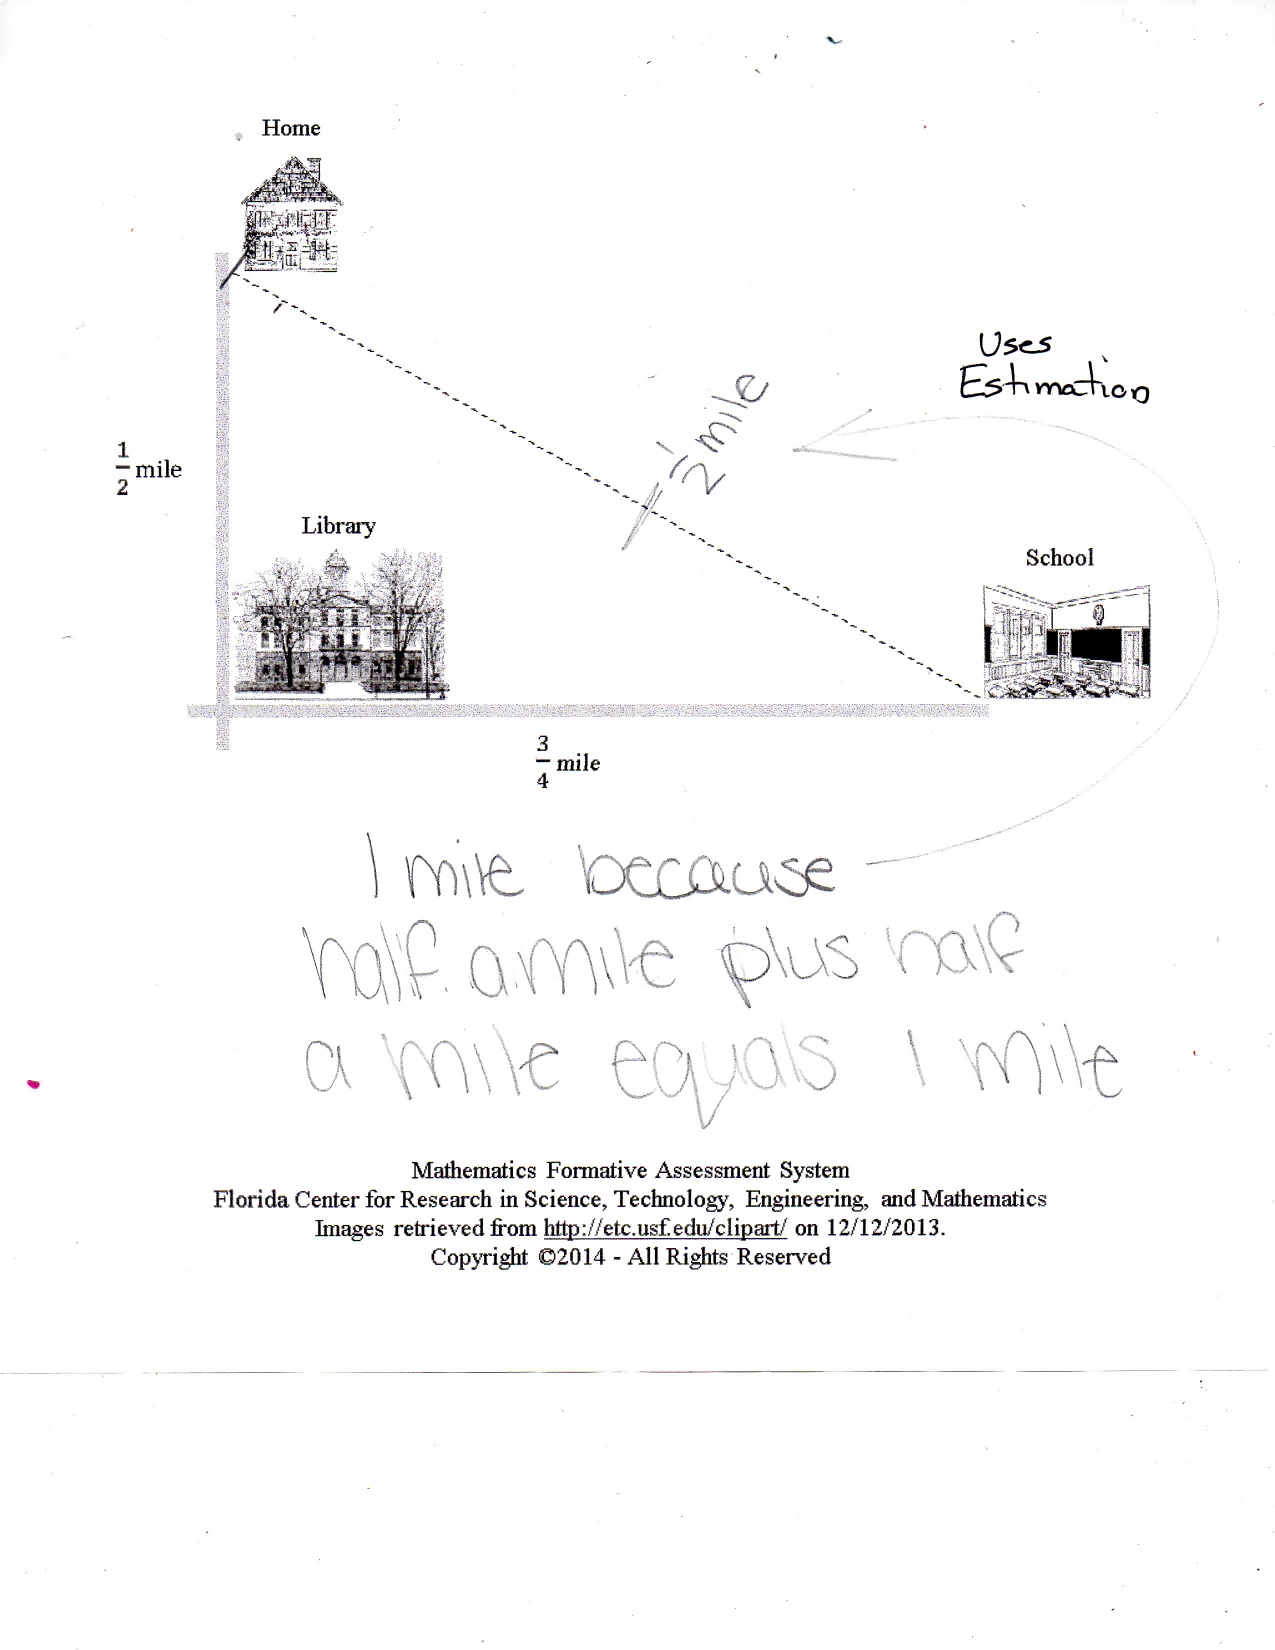 Home
Uses
Estimation
1/2 mile
1/2 mile
Library
School
3/4 mile
1 mile because
half a mile plus half
a mile equals 1 mile
Mathematics Formative Assessment System
Florida Center for Research in Science, Technology, Engineering, and Mathematics
Images retrieved from http://etc.usf.edu/clipart/ on 12/12/2013.
Copyright ©2014 - All Rights Reserved